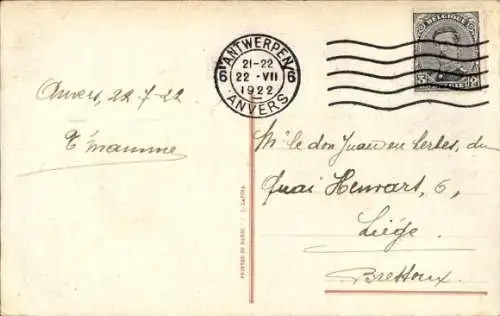 Anvers, 22-7-22
ANTWERPEN
6 21-22 6
22 · VII
1922
ANVERS
BELGIQUE
BELGIË
Mr le don Juan en herbes, du
Quai Henvart, 6,
Liége.
Bressoux.
PRINTED IN PARIS. - I. LAPINA.